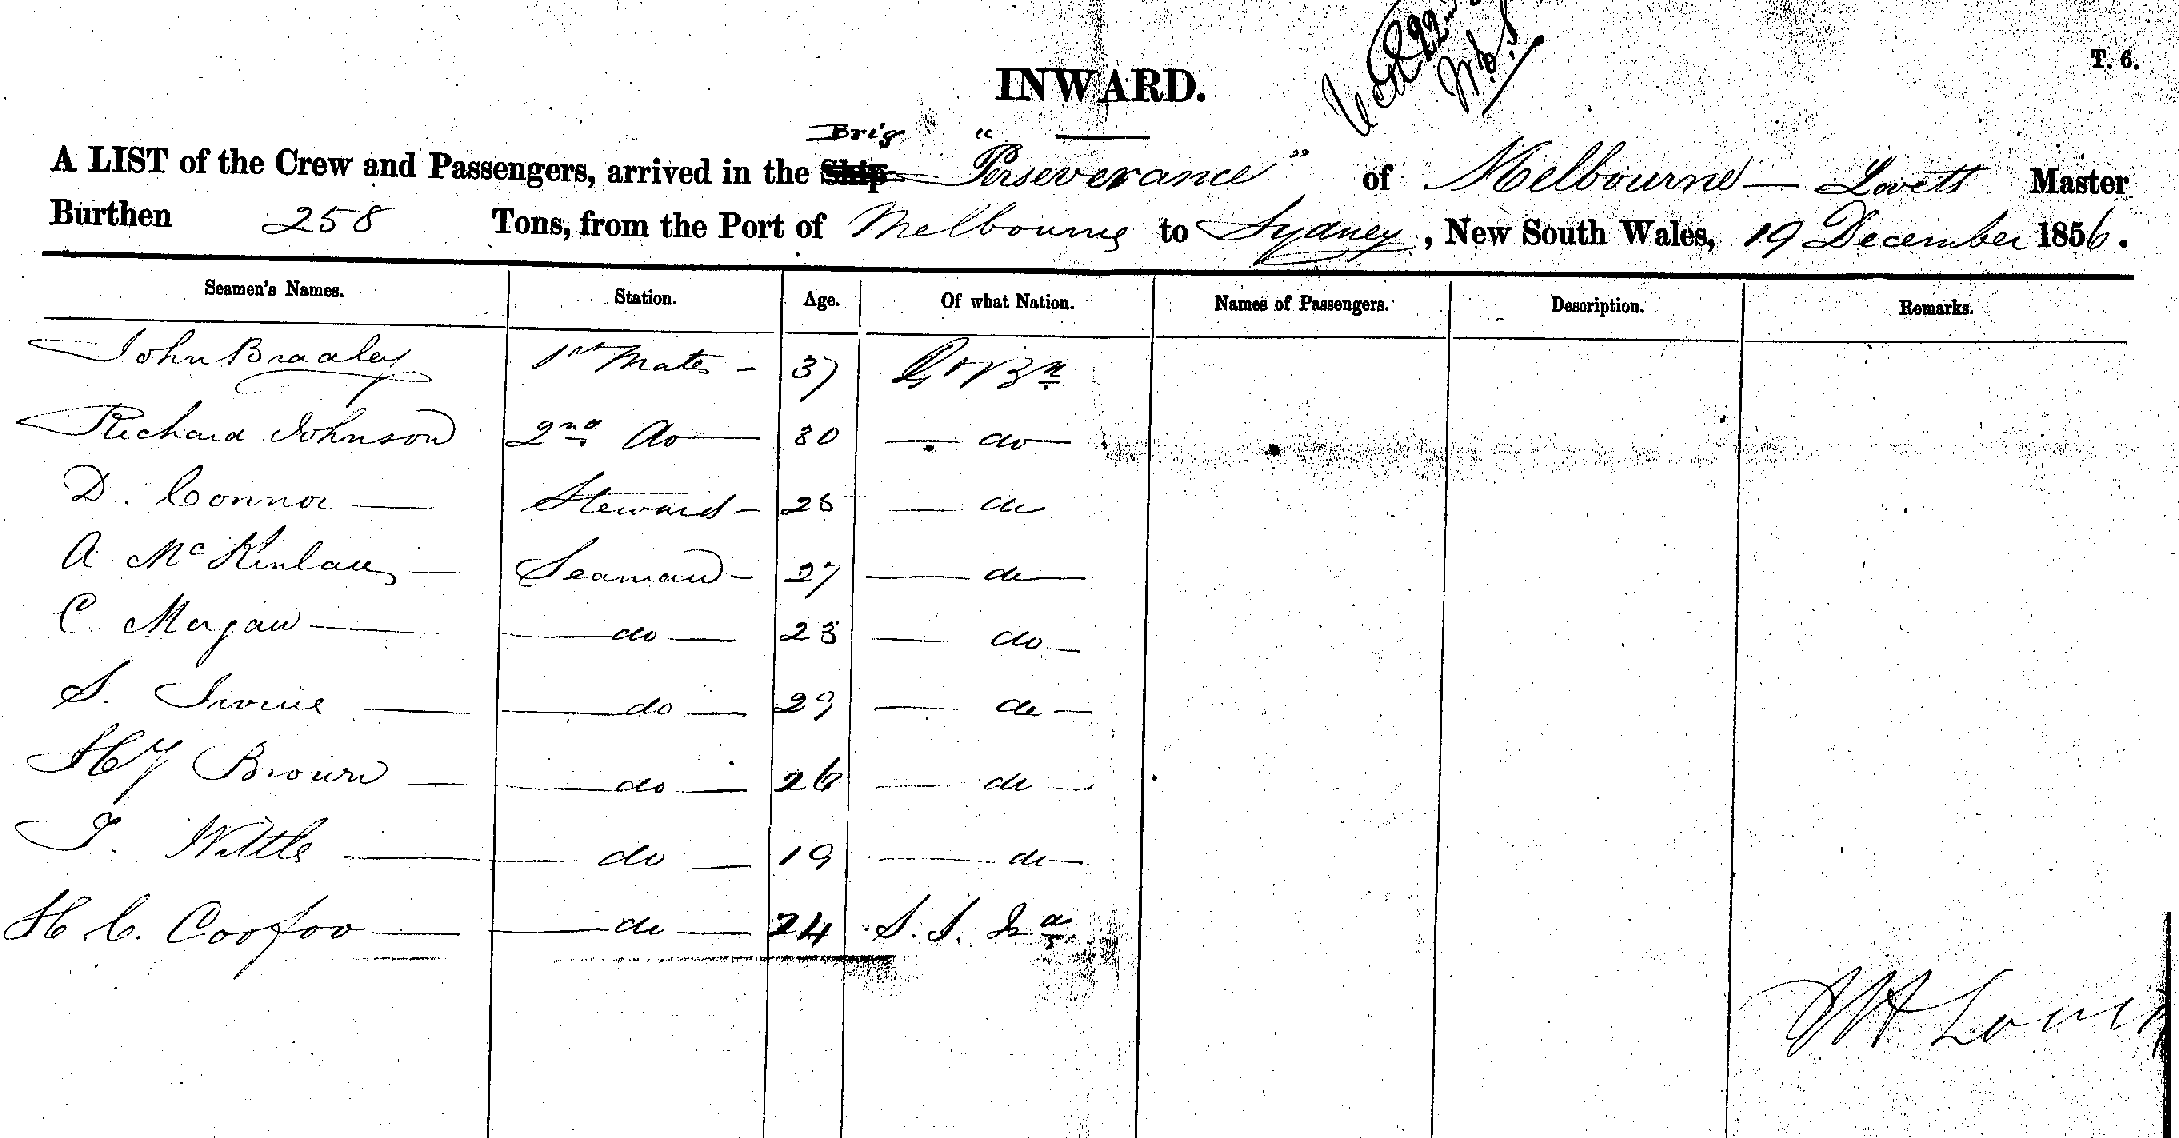 T. 6.
INWARD.
Brig
A LIST of the Crew and Passengers, arrived in the Ship "Perseverance" of Melbourne — Lovett Master
Burthen 258 Tons, from the Port of Melbourne to Sydney, New South Wales, 19 December 1856.
Seamen's Names. Station. Age. Of what Nation. Names of Passengers. Description. Remarks.
John Bradley 1st Mate — 37 Gt Bn
Richard Johnson 2nd do — 30 — do —
D. Connor — Steward — 26 — do
A McKinlay — Seaman — 27 — do —
C. Morgan — — do — 23 — do —
S. Irvine — — do — 29 — do —
Hy Brown — — do — 26 — do —
T. Wittle — — do — 19 — do —
H C. Coofoo — — do — 24 S. S.
Lovett